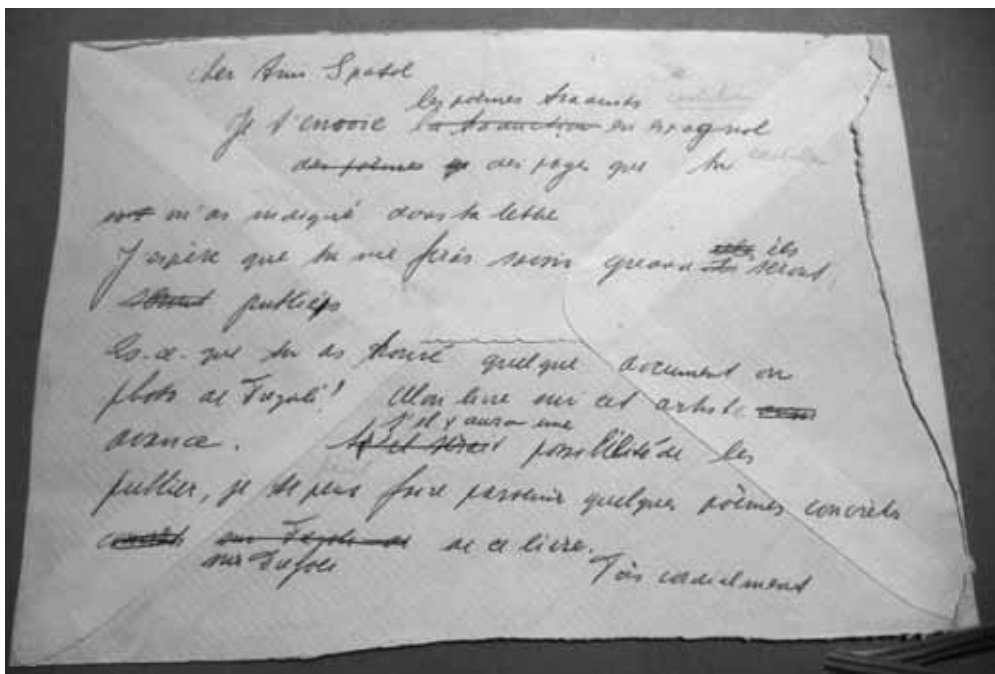 Cher Ami Spatol
les poèmes traduits
Je t'envoie la traduction en espagnol
des poèmes des pages que tu
m'as indiqué dans ta lettre
J'espère que tu me feras savoir quand ils seront
seront publiés
Es-ce-que tu as trouvé quelque document ou
photo de Fregoli? Mon livre sur cet artiste
s'il y aura une
avance. possibilité de les
publier, je te peux faire parvenir quelques poèmes concrets
sur Fregoli de de ce livre.
sur Fregoli Très cordialment